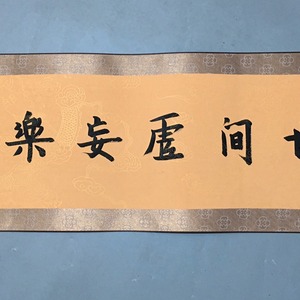 间虚妄樂